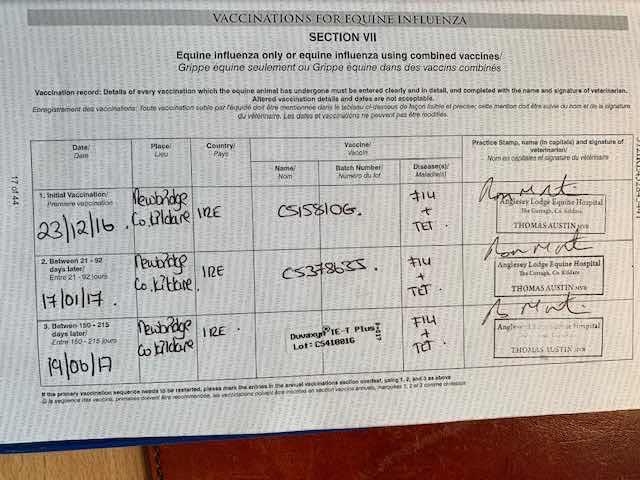 VACCINATIONS FOR EQUINE INFLUENZA
SECTION VII
Equine influenza only or equine influenza using combined vaccines/
Grippe équine seulement ou Grippe équine dans des vaccins combinés
Vaccination record: Details of every vaccination which the equine animal has undergone must be entered clearly and in detail, and completed with the name and signature of veterinarian.
Altered vaccination details and dates are not acceptable.
Enregistrement des vaccinations: Toute vaccination subie par l'équidé doit être mentionnée dans le tableau ci-dessous de façon lisible et précise; cette mention doit être suivie du nom et de la signature
du vétérinaire. Les dates et vaccinations ne peuvent pas être modifiés.
17 of 44
Date/
Date
Place/
Lieu
Country/
Pays
Vaccine/
Vaccin
Name/
Nom
Batch Number/
Numéro du lot
Disease(s)/
Maladie(s)
Practice Stamp, name (in capitals) and signature of
veterinarian/
Nom en capitales et signature du vétérinaire
1. Initial Vaccination/
Première vaccination
23/12/16
Newbridge
Co. Kildare
IRE
C515810G.
Flu
+
TET.
Anglesey Lodge Equine Hospital
The Curragh, Co. Kildare
THOMAS AUSTIN MVB
2. Between 21 - 92
days later/
Entre 21 - 92 jours
17/01/17.
Newbridge
Co. Kildare.
IRE
C537863S.
Flu
+
TET.
Anglesey Lodge Equine Hospital
The Curragh, Co. Kildare
THOMAS AUSTIN MVB
3. Between 150 - 215
days later/
Entre 150 - 215 jours
19/06/17
Newbridge
Co Kildare
IRE.
Duvaxyn IE-T Plus
Lot: C541881G
Flu
+
TET.
Anglesey Lodge Equine Hospital
The Curragh, Co. Kildare
THOMAS AUSTIN MVB
If the primary vaccination sequence needs to be restarted, please mark the entries in the annual vaccinations section overleaf, using 1, 2, and 3 as above